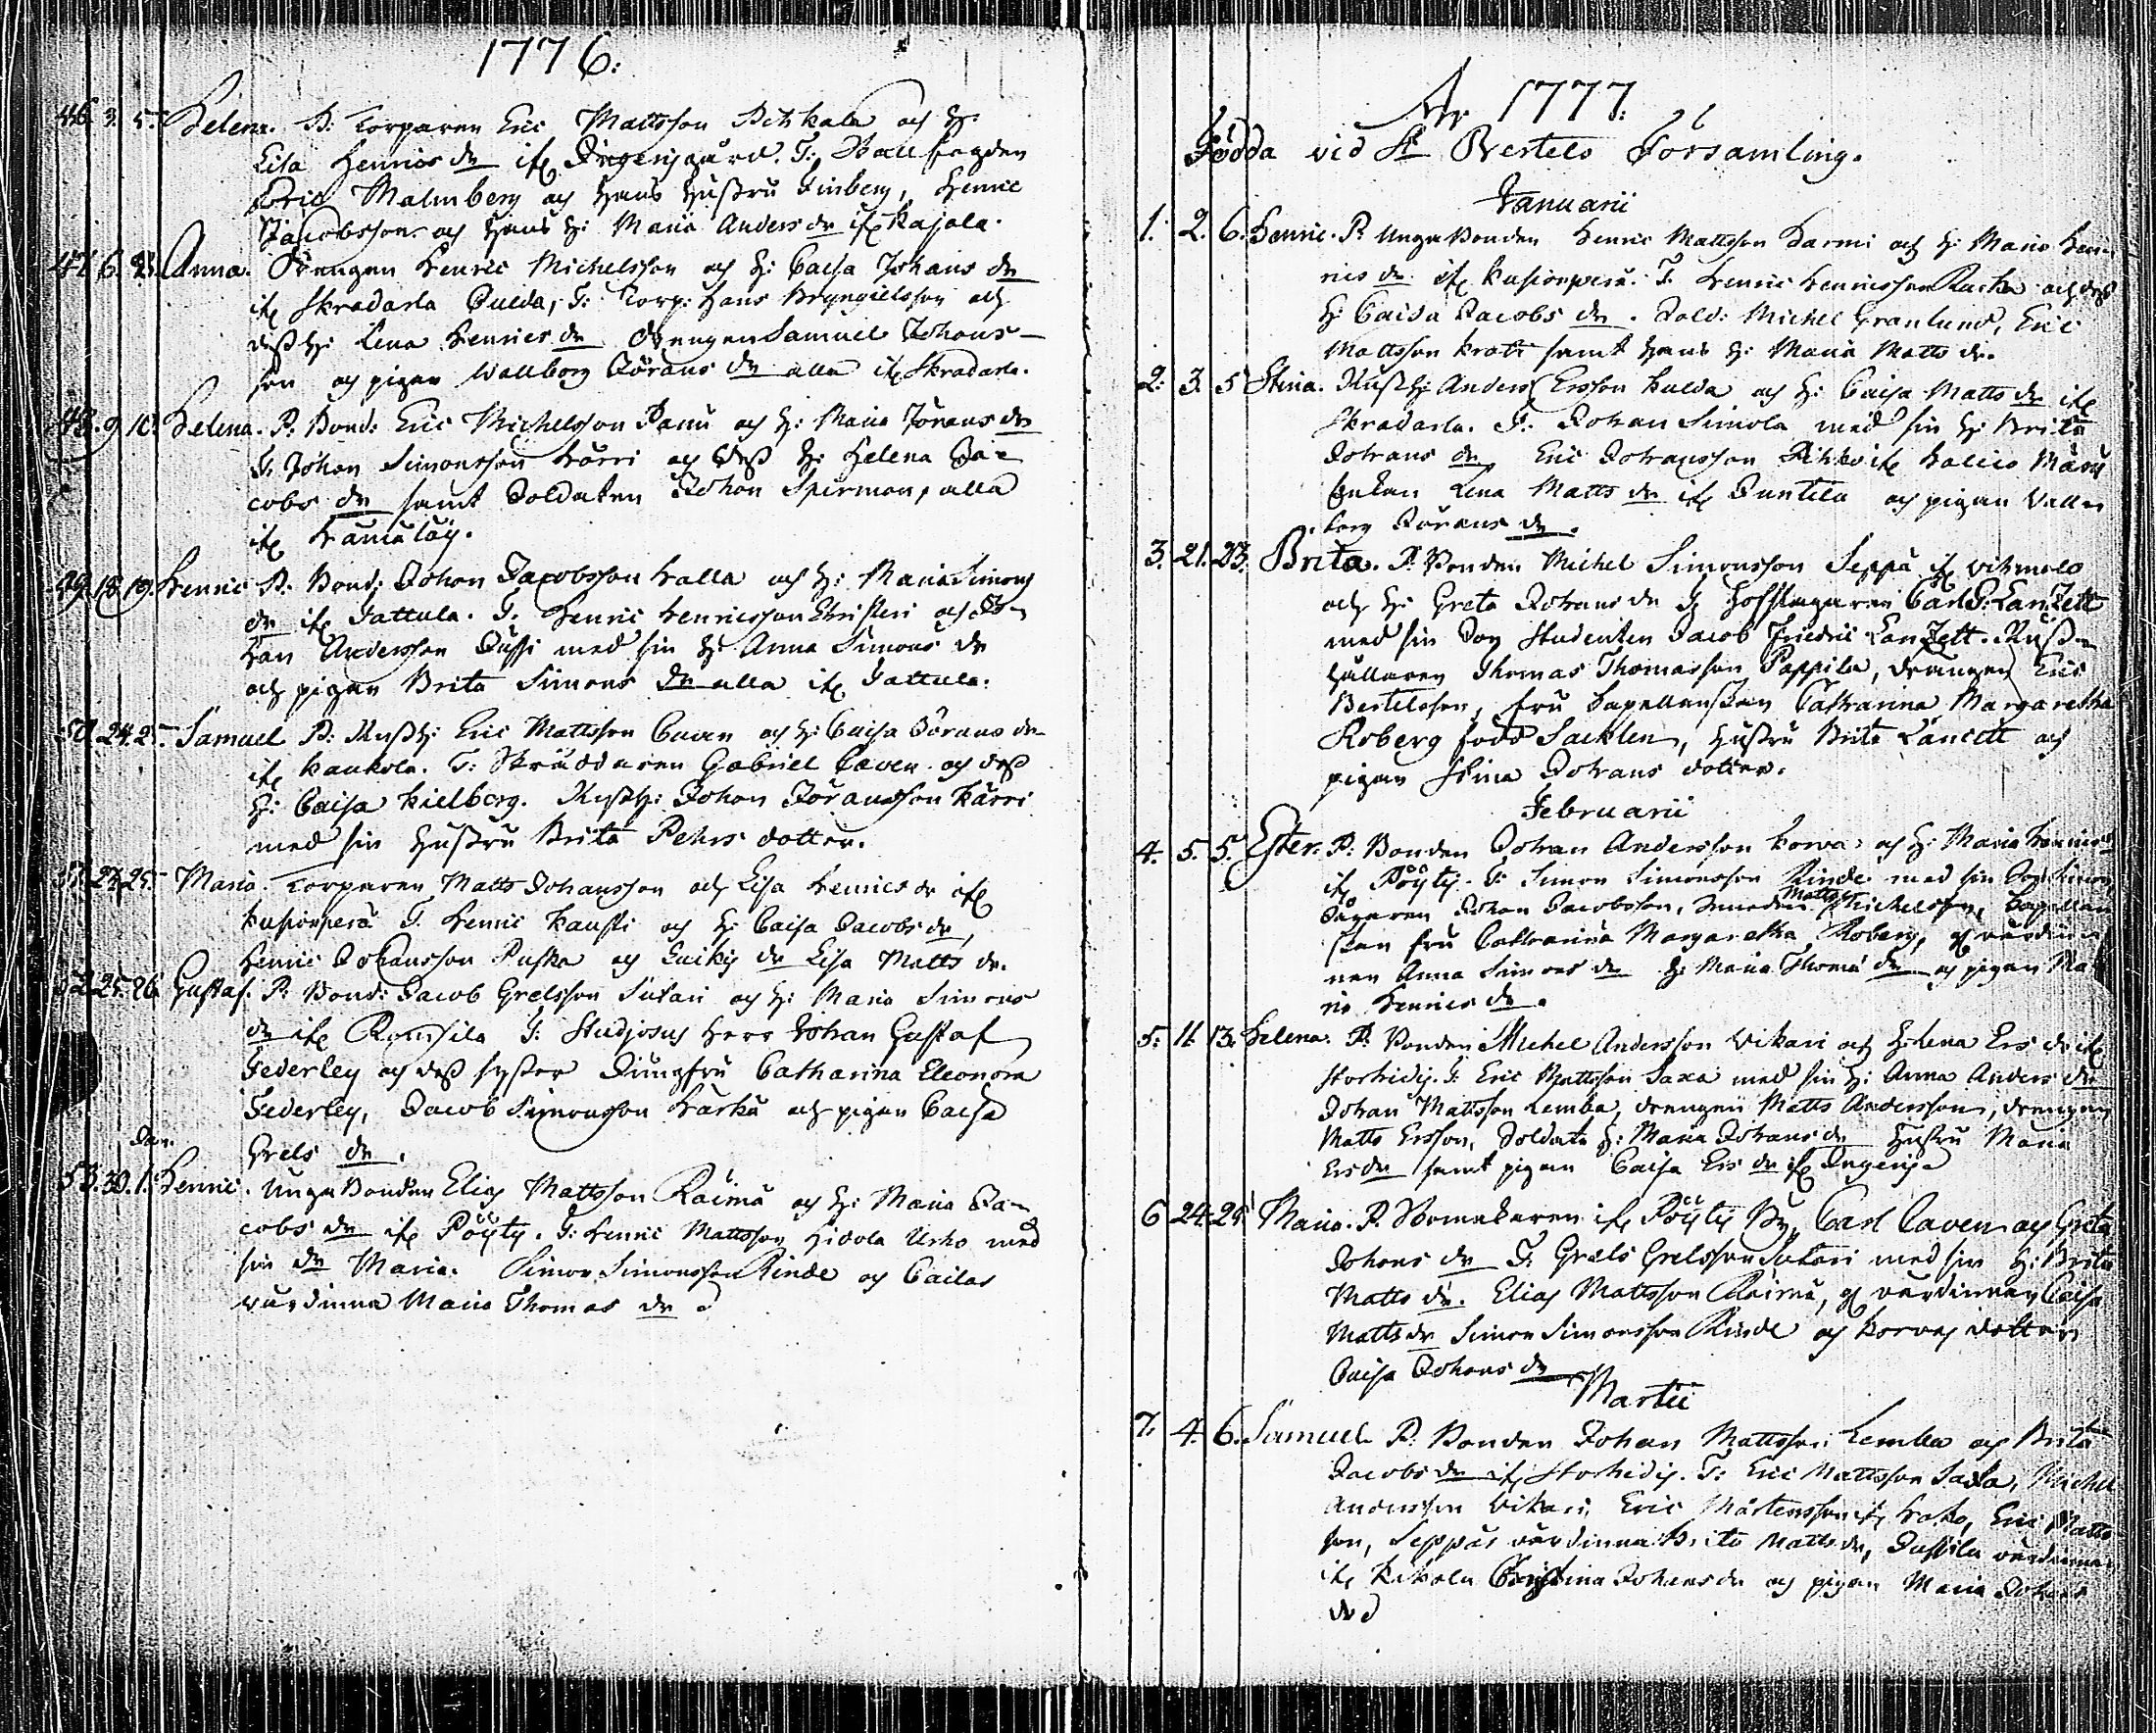 1776:
46. 3. 5. Helena. P: Torparen Eric Mattsson Pitkala och H:
Lisa Henrics dr ifr. Ingenisgård. T: Befallfogden
Eric Malmberg och hans hustru Finberg, Henric
Jacobsson och hans H: Maria Anders dr ifr Kajala.
47. 6. Anna. Drengen Henric Michelsson och H: Caisa Johans dr
ifr Skradarla Pulda, T: Torp: Hans Bryngielsson och
dess H: Lena Henrics dr Drengen Samuel Johans-
son och pigan Wallborg Jörans dr alla ifr Skradarla.
48. 9 10. Helena. P: Bond: Eric Michelsson Pamu och H: Maria Jörans dr
T. Johan Simonsson Karri och dess H: Helena Ja-
cobs dr samt Soldaten Johan Spirman, alla
ifr
49. 18. 19. Henric P: Bond: Johan Jacobsson Kalla och H: Maria Simons
dr ifr Tattula. T: Henric Henricsson Christeri och Jo-
han Andersson Jussi med sin H: Anna Simons dr
och pigan Brita Simons dr alla ifr Tattula.
50. 24. 25. Samuel P: Rusth: Eric Mattsson Caven och H: Caisa Jörans dr
ifr Kaukola. T: Skräddaren Gabriel Caven och dess
H: Caisa Kielberg. Rusth: Johan Jöransson Karri
med sin hustru Brita Pehrs dotter.
51. 23. 25. Maria. Torparen Matts Johansson och Lisa Henrics dr ifr
Kusionperä T. Henric Kausti och H: Caisa Jacobs dr,
Henric Johansson Puska och dr Lisa Matts dr.
52. 25. 26. Gustaf. P: Bond: Jacob Grelsson Sutari och H: Maria Simons
dr ifr T: Studiosus Herr Johan Gustaf
Federley och dess syster Jungfru Catharina Eleonora
Federley, Jacob Simonsson Karku och pigan Caisa
Grels dr.
Jan.
53. 30. 1. Henric. Unga Bonden Elias Mattsson Räimä och H: Maria Ja-
cobs dr ifr Pöyty. T: Henric Mattsson Hidola Urho med
sin dr Maria. Simon Simonsson Rinde och Cailas
värdinna Maria Thomas dr
Ao 1777.
Födda vid St Bertels Församling.
Januarii
1. 2. 6. Henric. P. Unga Bonden Henric Mattsson Harmi och H: Maria Hen-
rics dr ifr Kusionperä. T. Henric Henricsson Rucka och dess
H: Caisa Jacobs dr. Sold: Michel Granlund, Eric
Mattsson Krati samt hans H: Maria Matts dr.
2. 3. 5 Stina. Rusth: Anders Ersson Pulda och H: Caisa Matts dr ifr
Skradarla. T. Johan Simola med sin H: Brita
Johans dr Eric Johansson ifr Kallio
Enkan Lena Matts dr ifr Juntila och pigan Vall-
borg Jörans dr.
3. 21. 23. Brita. P. Bonden Michel Simonsson Seppä ifr Vihmalo
och H: Greta Johans dr T. Hofslagaren Carl G: Lanzett
med sin Son Studenten Jacob Friedric Lanzett. Rust-
hållaren Thomas Thomasson Pappila, drängen Eric
Bertelsson, fru Capellanskan Catharina Margaretha
Roberg född Sacklen, hustru Brita Lancett och
pigan Stina Johans dotter.
Februarii
4. 5. 5. Ester. P: Bonden Johan Andersson Korva och H: Maria Henrics dr
ifr Pöyty. T: Simon Simonsson Rinde med sin Son Simon,
Sågaren Johan Jacobsson, Smeden Matts Michelsson, Capellan-
skan fru Catharina Margaretha Roberg, och värdin-
nan Anna Simons dr H: Maria Thoma dr och pigan Ma-
ria Henrics dr.
5. 11. 13. Helena. P. Bonden Michel Andersson Vikari och H: Lena Ers dr ifr
Storhidis. T: Eric Mattsson Saxa med sin H: Anna Anders dr
Johan Mattsson Lemba, drengen Matts Andersson, drengen
Matts Ersson, Soldats H: Maria Johans dr Hustru Maria
Ers dr samt pigan Caisa Ers dr ifr Ingenise
6 24. 25. Maria. P. Skomakaren ifr Pöyty By, Carl Caven och Greta
Johans dr T. Grels Grelsson Sutari med sin H: Brita
Matts dr. Elias Mattsson Räimä, och värdinnan Caisa
Matts dr Simon Simonsson Rinde och Korvas dotter
Caisa Johans dr
Martii
7. 4. 6. Samuel P: Bonden Johan Mattsson Lemba och Brita
Jacobs dr ifr Storhidis. T: Eric Mattsson Saxa, Michel
Andersson Vikari, Eric Mårtensson ifr Kako, Eric Matts-
son, Seppäs värdinna Brita Matts dr, Jussila värdinna
ifr Kakola Christina Johans dr och pigan Maria Johans
dr